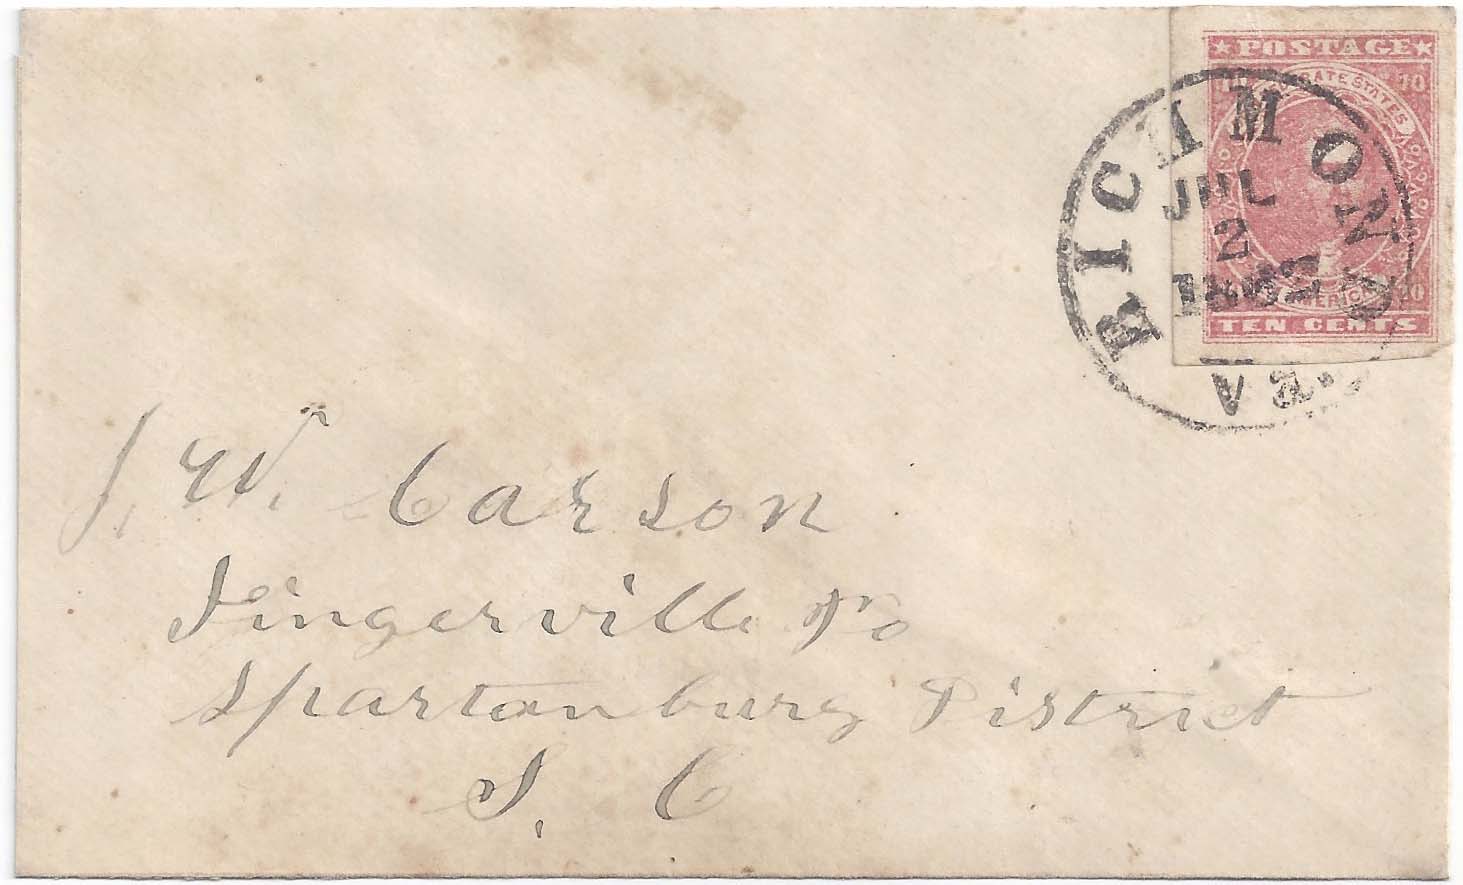 ★ POSTAGE ★
10 CONFEDERATE STATES 10
AMERICA 10
TEN CENTS
RICHMOND
JUL
2
1862
Va.
J. W. Carson
Fingerville Po
Spartanburg District
S. C